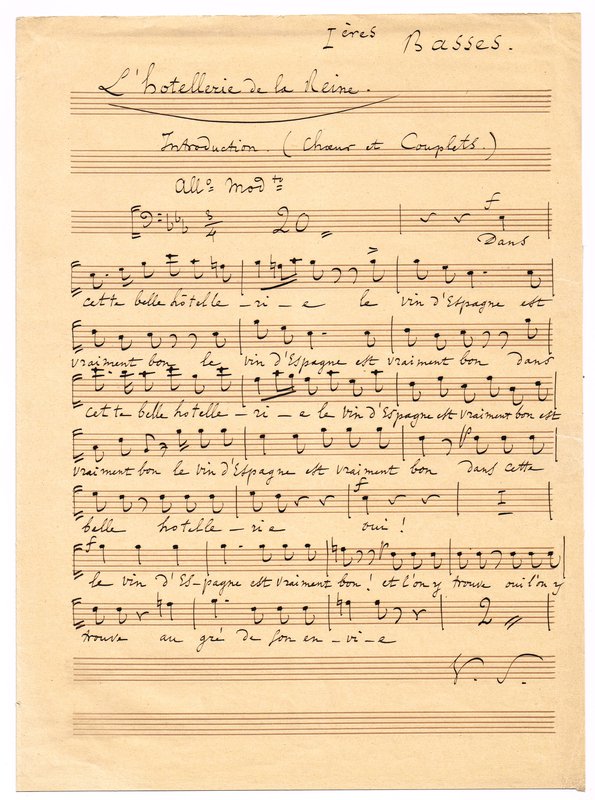 Ières Basses.
L'hotellerie de la Reine.
Introduction. (Chœur et Couplets.)
Allo Modto
3/4 20 f
Dans
cette belle hôtelle - ri - e le vin d'Espagne est
vraiment bon le vin d'Espagne est vraiment bon dans
cette belle hotelle - ri - e le vin d'Espagne est vraiment bon est
vraiment bon le vin d'Espagne est vraiment bon dans cette
f
belle hotelle - rie oui !
f
le vin d'Es-pagne est vraiment bon ! et l'on y trouve oui l'on y
2
trouve au gré de son en - vi - e
V. S.